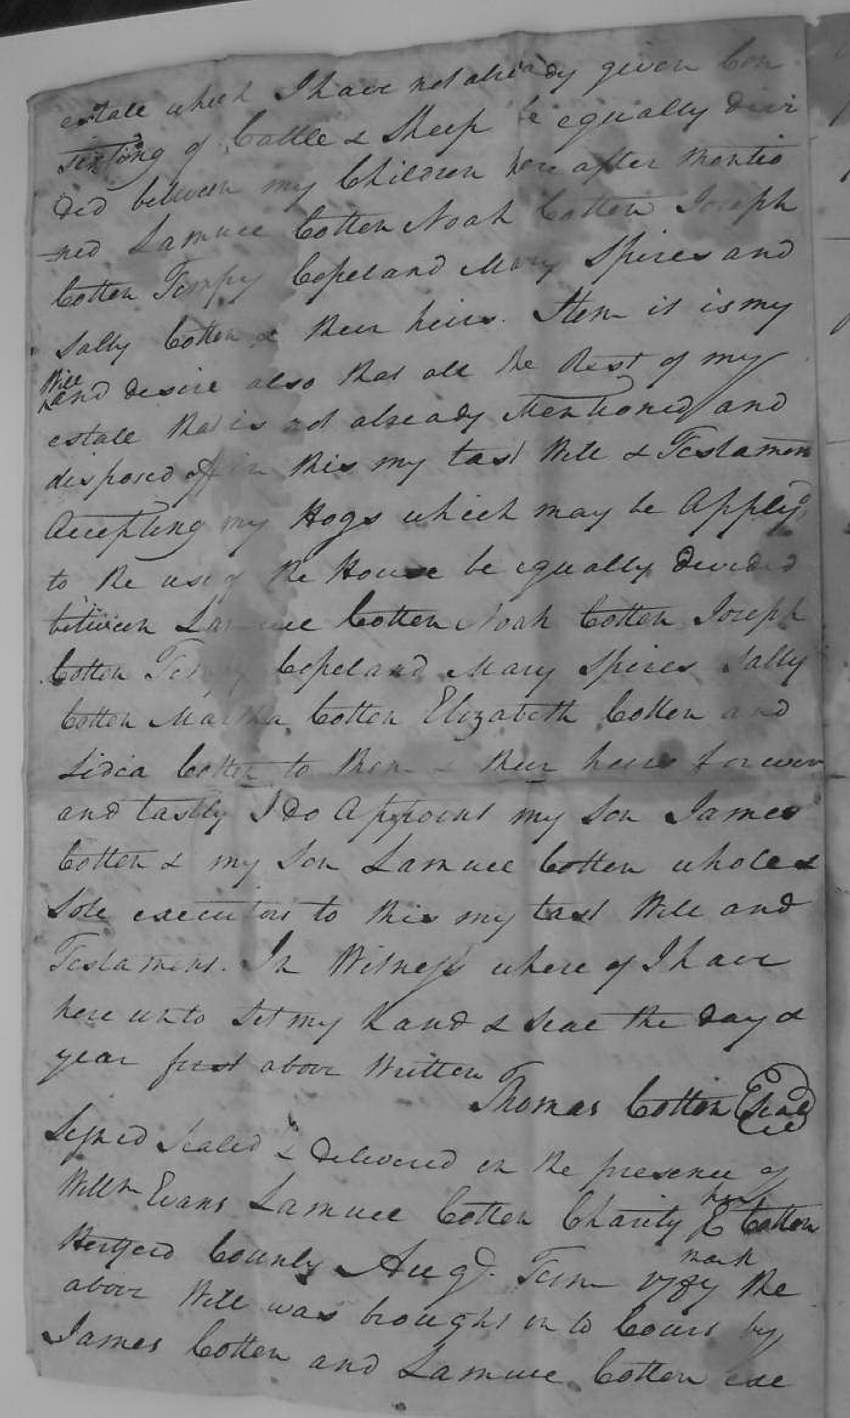 estate which I have not already given Con
sisting of Cattle & Sheep be equally divi
ded between my Children here after Mentio
ned Samuel Cotten Noah Cotten Joseph
Cotten Tempy Copeland Mary Spires and
Sally Cotten & their heirs. Item it is my
Will
and desire also that all the Rest of my
estate that is not already Mentioned and
disposed of in this my last Will & Testamen
Accepting my Hogs which may be Apply'd
to the use of the House be equally devided
between Samuel Cotten Noah Cotten Joseph
Cotten Tempy Copeland Mary Spires Sally
Cotten Martha Cotten Elizabeth Cotten and
Lidia Cotten to them & their heirs forever
and lastly I do Appoint my Son James
Cotten & my Son Samuel Cotten whole &
Sole executors to this my last Will and
Testament. In Witness where of I have
here unto Set my hand & Seal the day &
year first above Written
Thomas Cotten Seal
Signed Sealed & delivered in the presence of
Willm Evans Samuel Cotten Charity her Cotten
mark
Hertford County Augt. Term the
above Will was brought in to Court by
James Cotten and Samuel Cotten exe